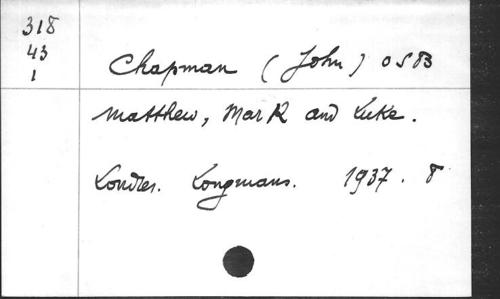 318
43
1
Chapman (John) OSB
Matthew, Mark and Luke.
Londres. Longmans. 1937. 8